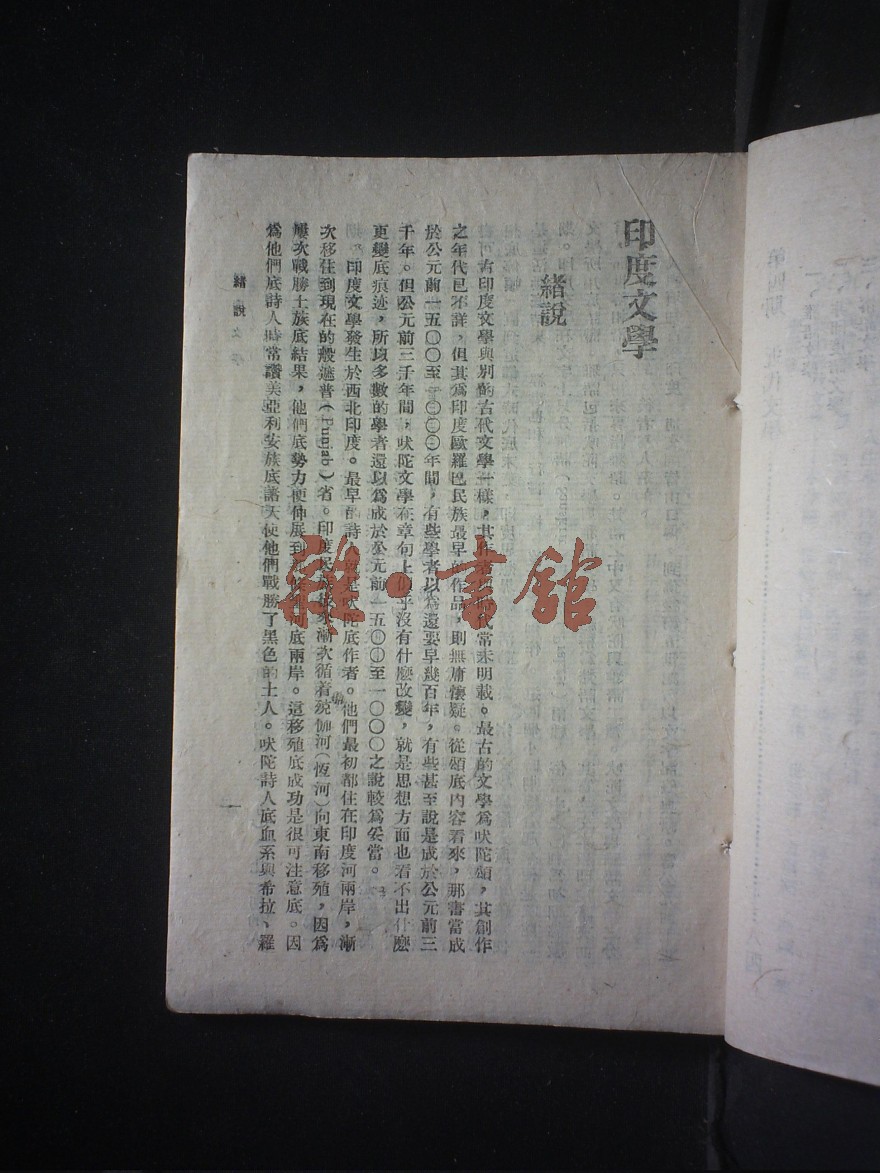 印度文學
緒說
古印度文學與別的古代文學一樣，其作者與時代常未明載。最古的文學爲吠陀頌，其創作
之年代已不詳，但其爲印度歐羅巴民族最早的作品，則無庸懷疑。從頌底內容看來，那書當成
於公元前一五〇〇至一〇〇〇年間，有些學者以爲還要早幾百年，有些甚至說是成於公元前三
千年。但公元前三千年間，吠陀文學在章句上似乎沒有什麼改變，就是思想方面也看不出什麼
更變底痕迹，所以多數的學者還以爲成於公元前一五〇〇至一〇〇〇之說較爲妥當。
印度文學發生於西北印度。最早的詩人就是吠陀底作者。他們最初都住在印度河兩岸，漸
次移住到現在的般遮普（Punjab）省。印度民族後來漸次循着殑伽河（恆河）向東南移殖，因爲
屢次戰勝土族底結果，他們底勢力便伸展到河底兩岸。這移殖底成功是很可注意底。因
爲他們底詩人時常讚美亞利安族底諸天使他們戰勝了黑色的土人。吠陀詩人底血系與希拉、羅
緒說
一
雜·書館